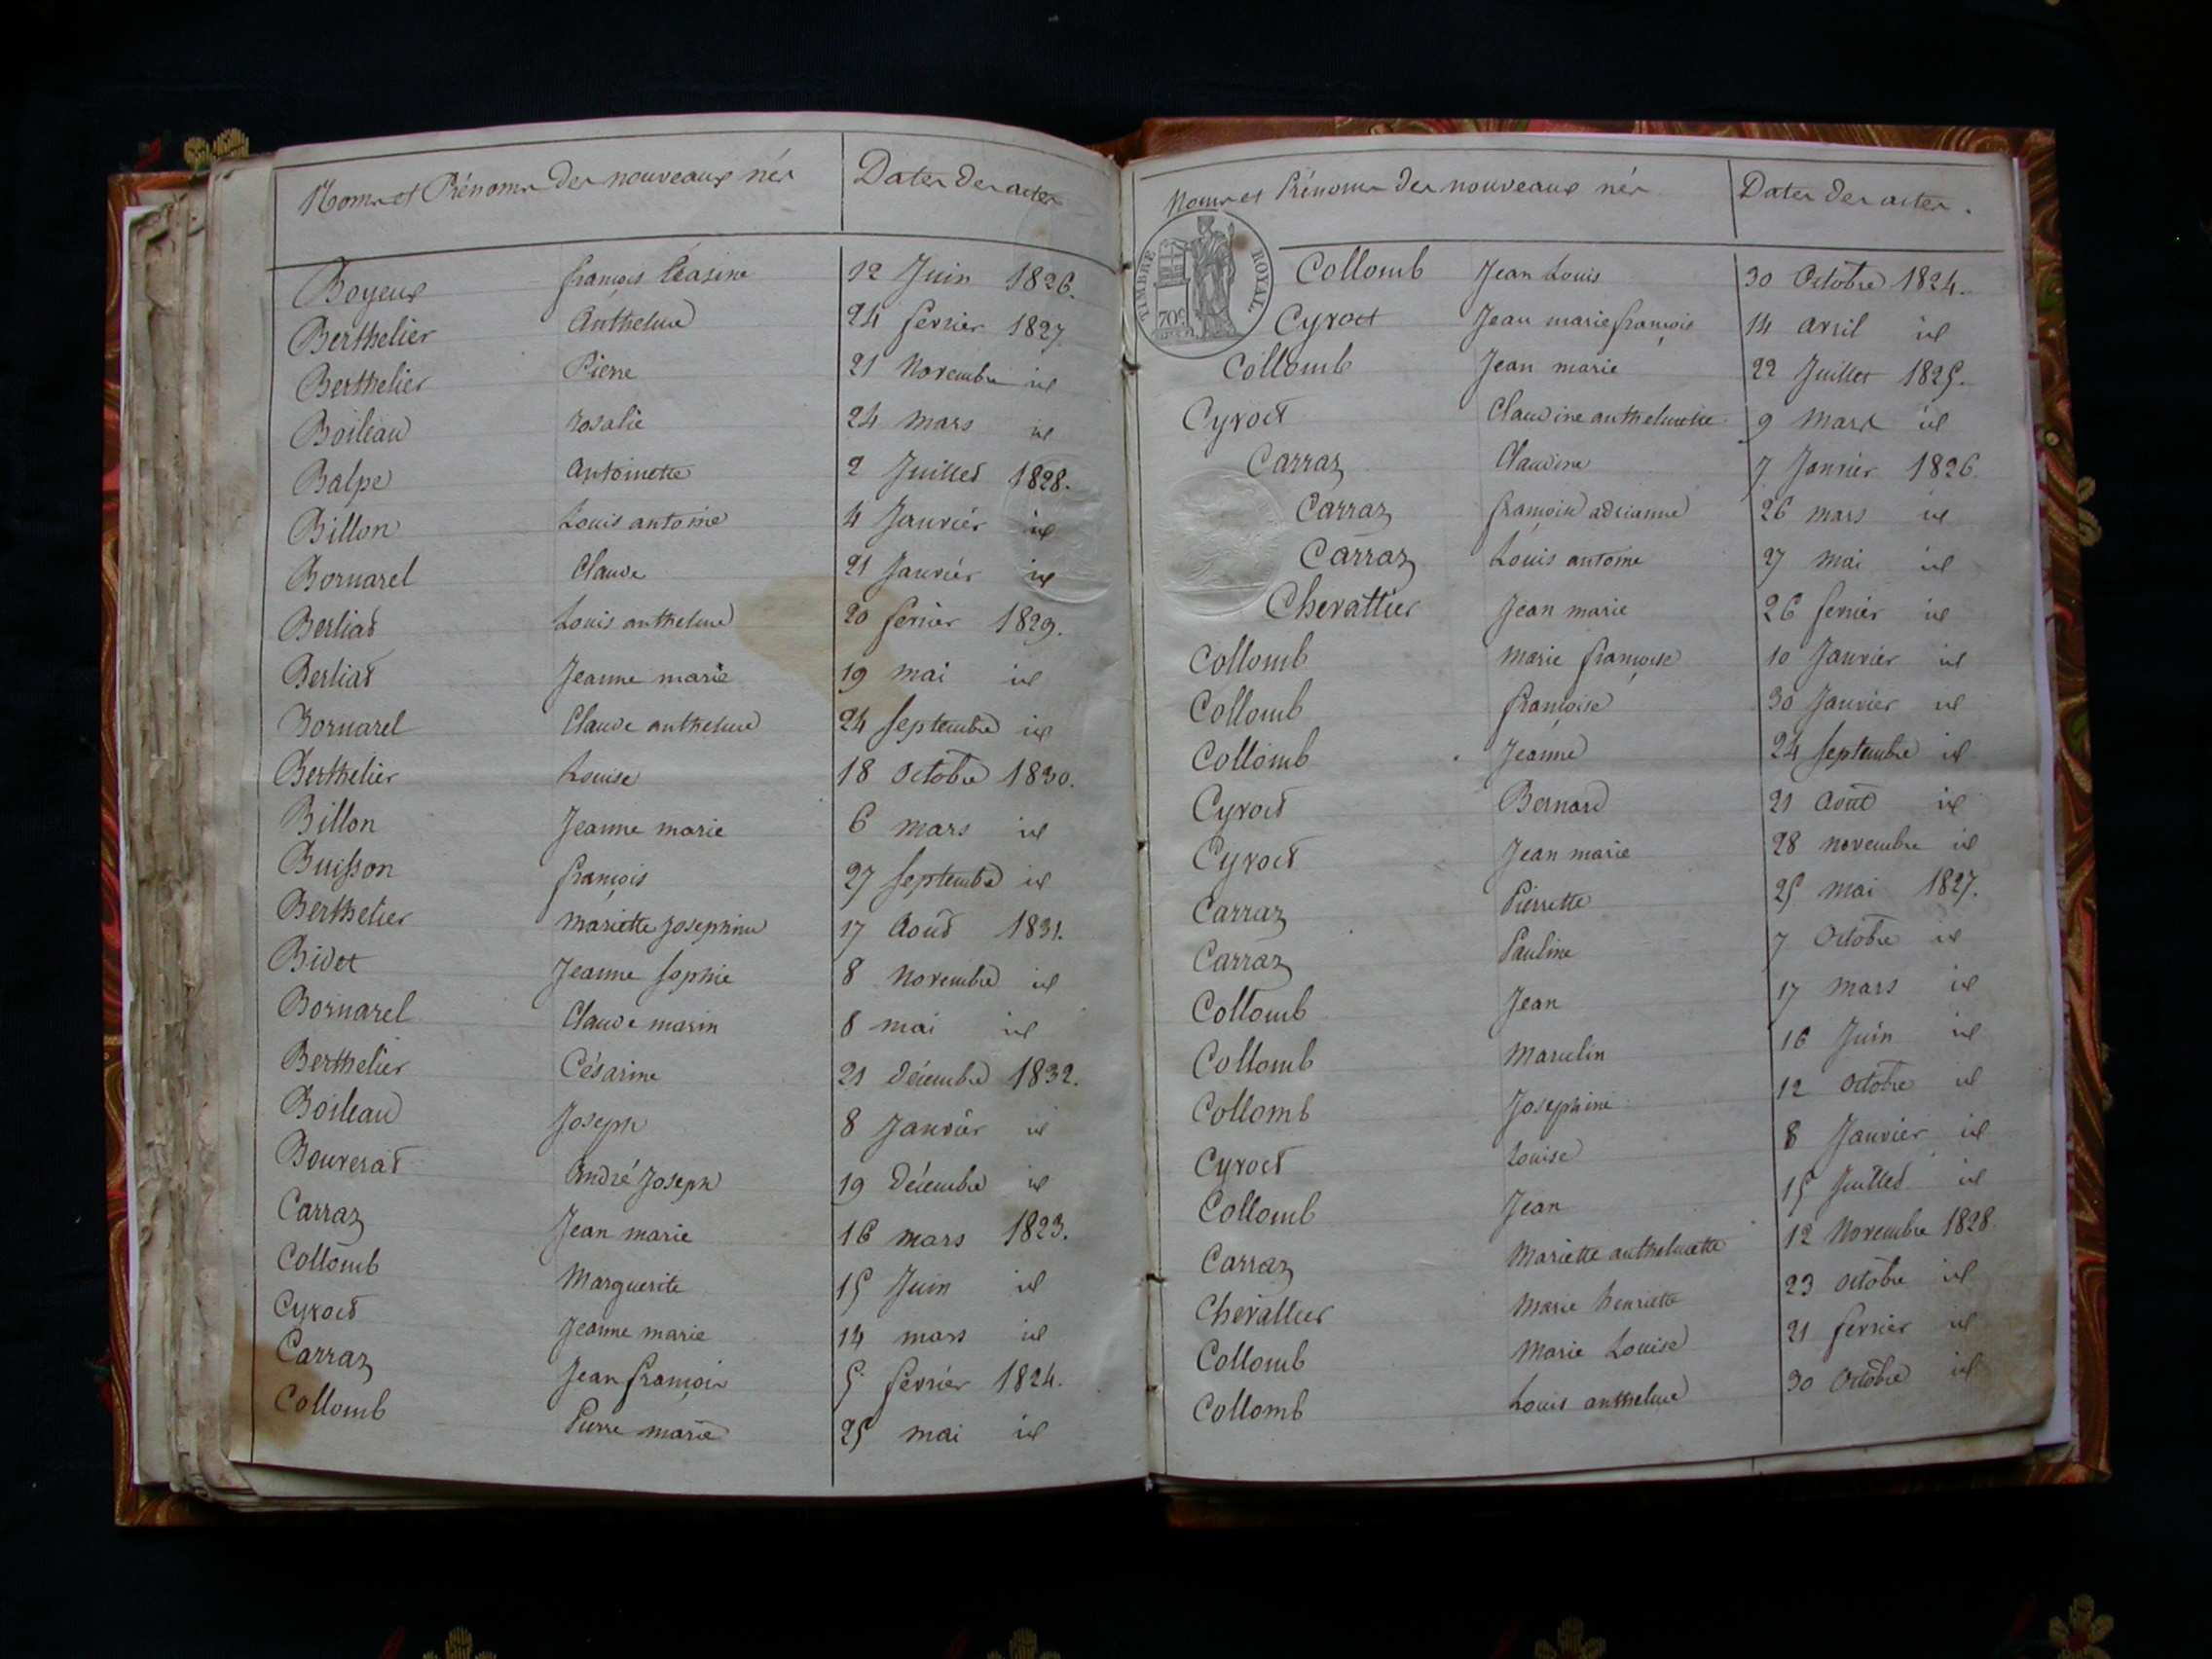 Noms et Prénoms des nouveaux nés Dates des actes
Boyeux françois 12 Juin 1826.
Berthelier Anthelme 24 fevrier 1827
Berthelier Pierre 21 Novembre id
Boileau rosalie 24 mars id
Balpe antoinette 2 Juillet 1828.
Billon Louis antoine 4 Janvier id
Bornarel Claude 21 Janvier id
Berliat Louis anthelme 20 fevrier 1829.
Berliat Jeanne marie 19 mai id
Bornarel Claude anthelme 24 septembre id
Berthelier Louise 18 octobre 1830.
Billon Jeanne marie 6 mars id
Buisson françois 27 septembre id
Berthelier mariette Josephine 17 Août 1831.
Bidet Jeanne sophie 8 Novembre id
Bornarel Claude marin 8 mai id
Berthelier Césarine 21 décembre 1832.
Boileau Joseph 8 Janvier id
Bouverat André Joseph 19 Décembre id
Carraz Jean marie 16 mars 1823.
Collomb Marguerite 15 Juin id
Cyroct Jeanne marie 14 mars id
Carraz Jean françois 5 février 1824.
Collomb Pierre marie 25 mai id
Noms et Prénoms des nouveaux nés Dates des actes.
TIMBRE ROYAL
70c
Collomb Jean Louis 30 Octobre 1824.
Cyroct Jean marie françois 14 avril id
Collomb Jean marie 22 Juillet 1825.
Cyroct Claudine anthelmette 9 Mars id
Carraz Claudine 7 Janvier 1826.
Carraz adrianne 26 mars id
Carraz Louis antoine 27 mai id
Chevallier Jean marie 26 fevrier id
Collomb marie françoise 10 Janvier id
Collomb françoise 30 Janvier id
Collomb Jeanne 24 septembre id
Cyroct Bernard 21 Août id
Cyroct Jean marie 28 novembre id
Carraz Pierrette 25 mai 1827.
Carraz Pauline 7 Octobre id
Collomb Jean 17 mars id
Collomb Marcelin 16 Juin id
Collomb Josephine 12 octobre id
Cyroct Louise 8 Janvier id
Collomb Jean 15 Juillet id
Carraz Mariette anthelmette 12 Novembre 1828
Chevallier Marie henriette 23 octobre id
Collomb Marie Louise 21 fevrier id
Collomb Louis anthelme 30 Octobre id